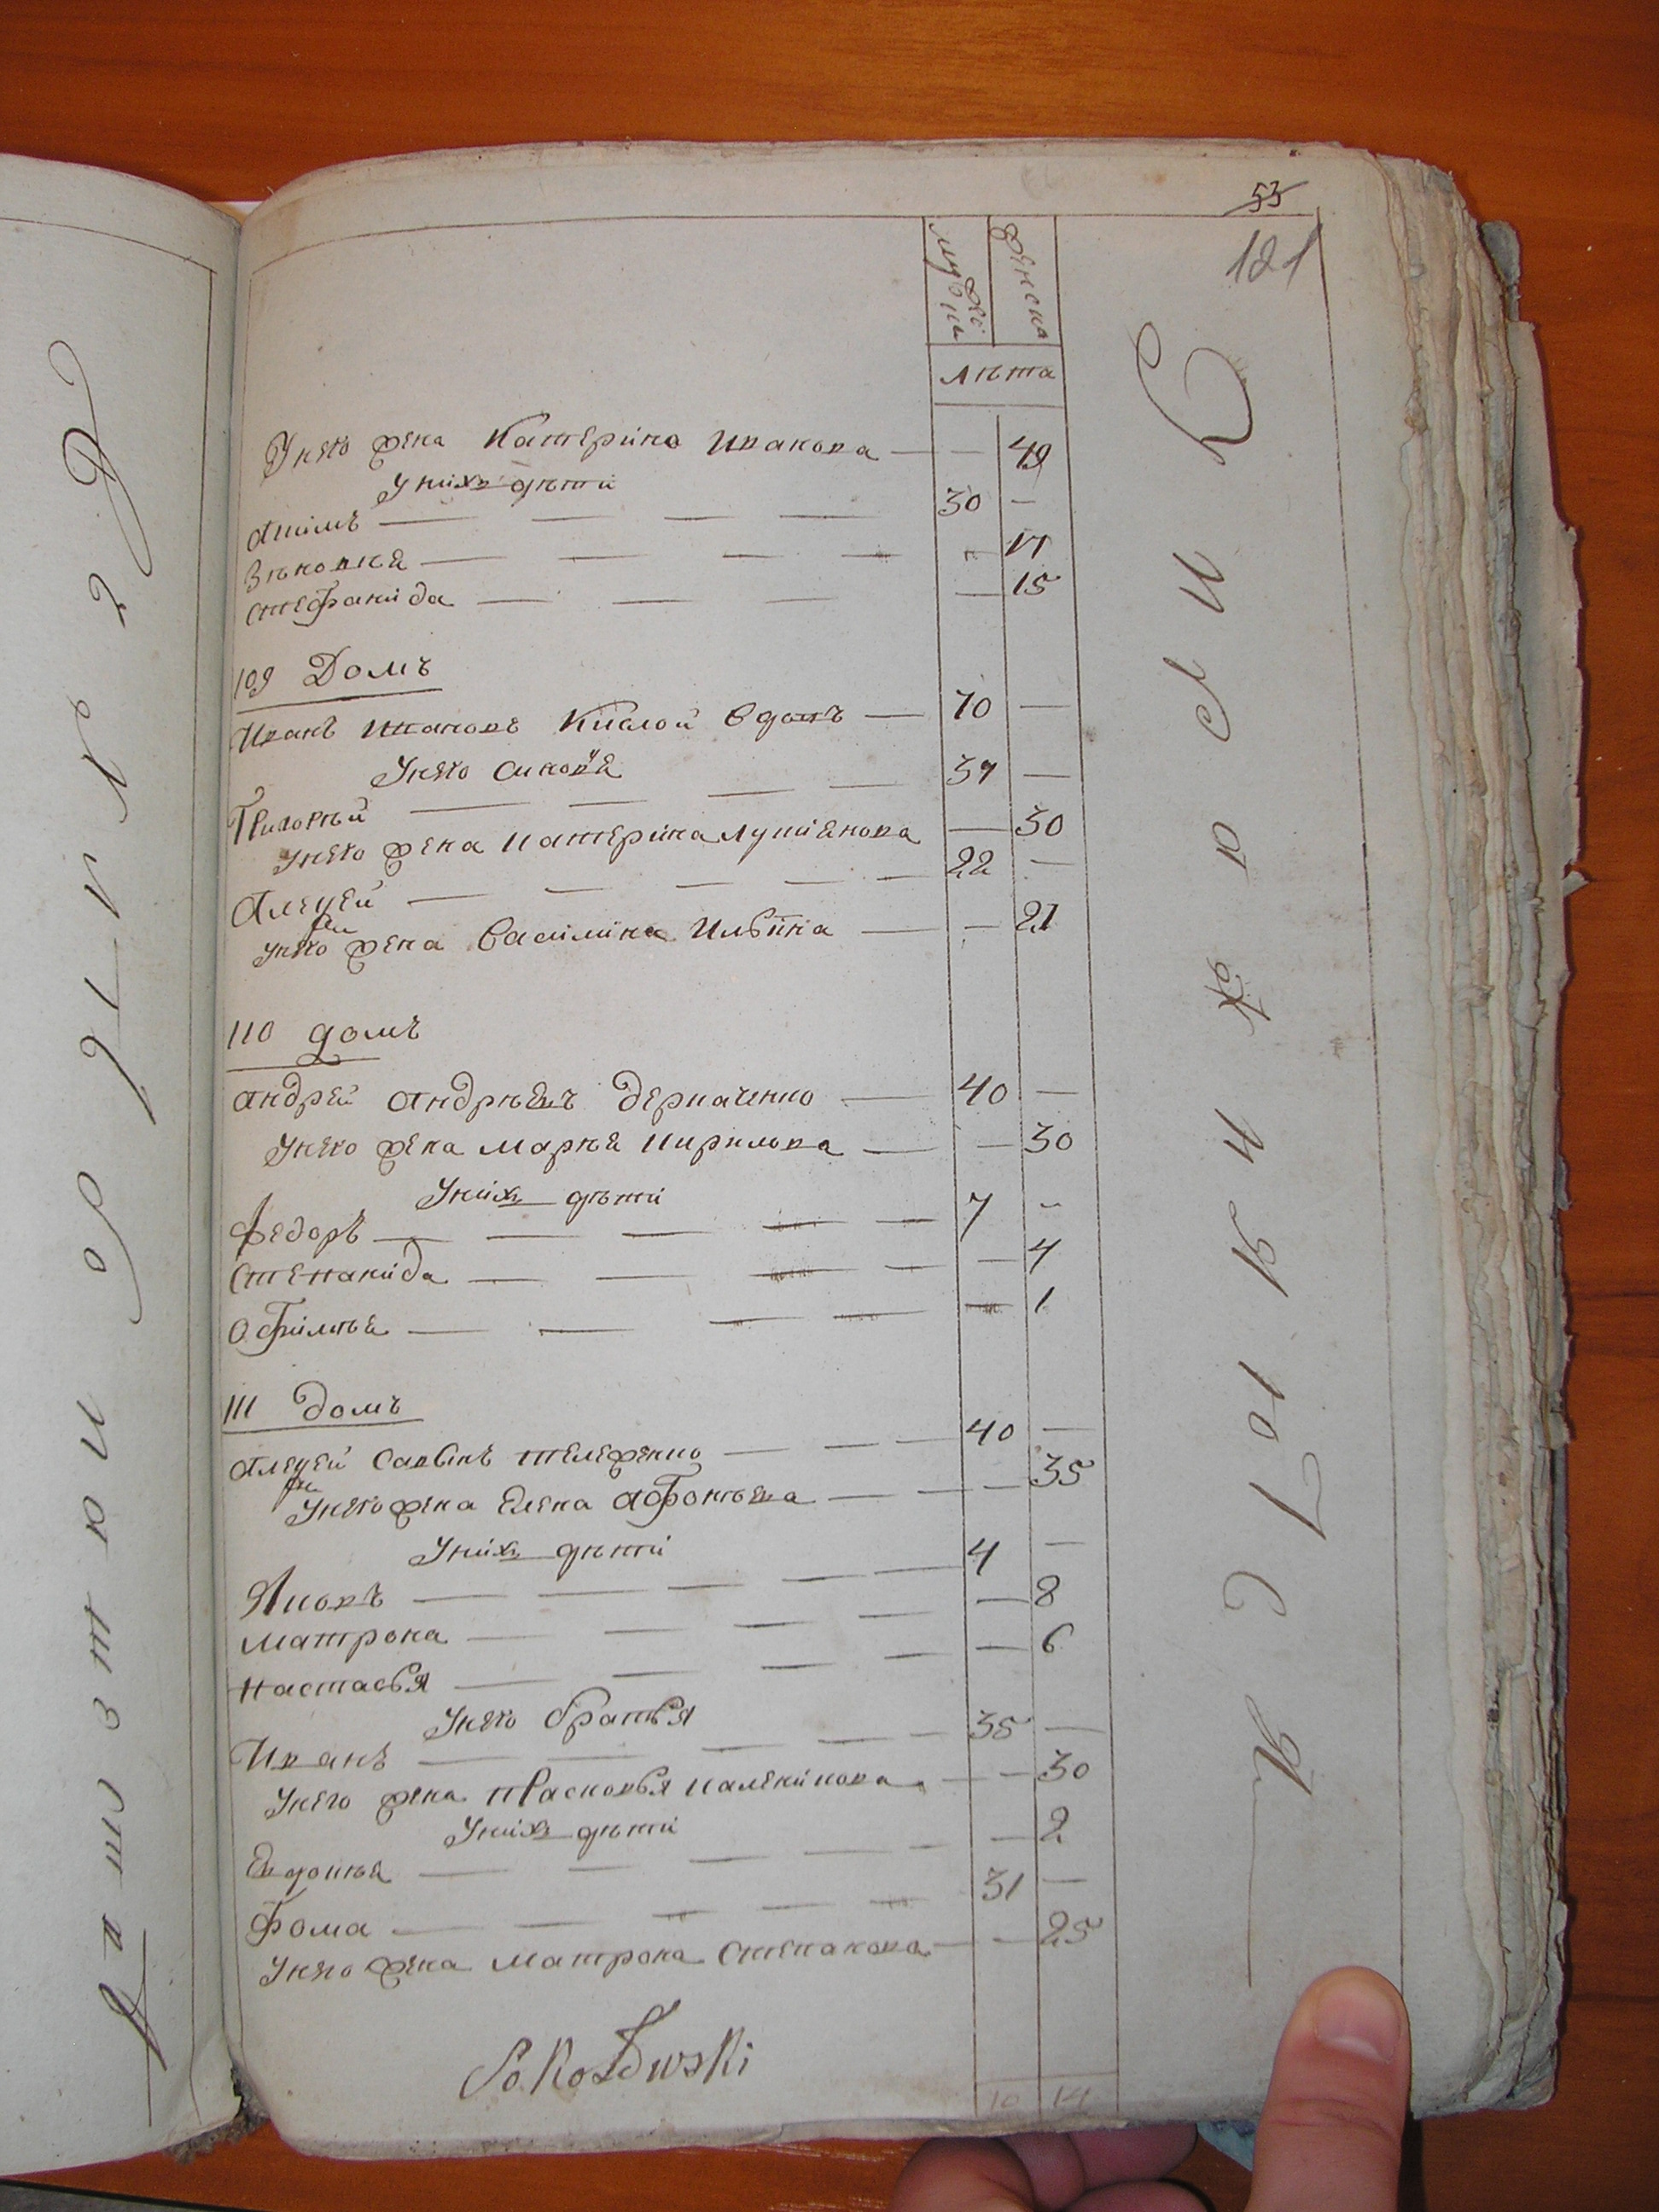 53
121
мужска
женска
лѣта
Унего жена Катерина Иванова — — 49
Унихъ дѣти
Акимъ — — — — 30 —
Зѣновия — — — — — 17
Стефанида — — — — 15
109 Домъ
Иванъ Ивановъ Кислой вдовъ — 70 —
Унего синовя
Григорѣй — — — — 37 —
Унего жена Катерина Лукиянова — 30
Алексей — — — — — 22 —
Унего жена Василина Ильина — — 21
110 домъ
Андрей Андрѣевъ Деркаченко — 40 —
Унего жена Марѣя Кирилова — — 30
Унихъ дѣти
Федоръ — — — — — 7 —
Степанида — — — — — 4
Офимѣя — — — — — 1
111 домъ
Алексей Савинъ Тележенко — — — 40 —
Унего жена Елена Афонтьева — — — 35
Унихъ дѣти
Яковъ — — — — — 4 —
Матрона — — — — — 8
Настасья — — — — — 6
Унего братья
Иванъ — — — — — 35 —
Унего жена Прасковья Каленикова — — 30
Унихъ дѣти
Евдокѣя — — — — — 2
Фома — — — — — 31 —
Унего жена Матрона Степанова — — 25
Sokołowski
10 14